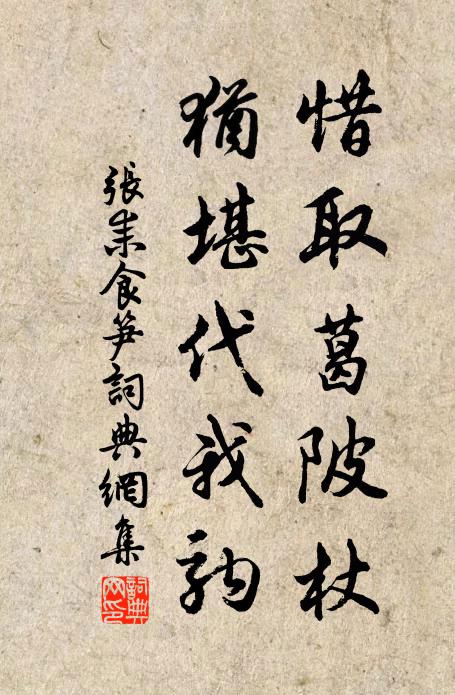 惜取葛陂杖
猶堪代我駒
張耒食笋詞典網集
詞典
网印